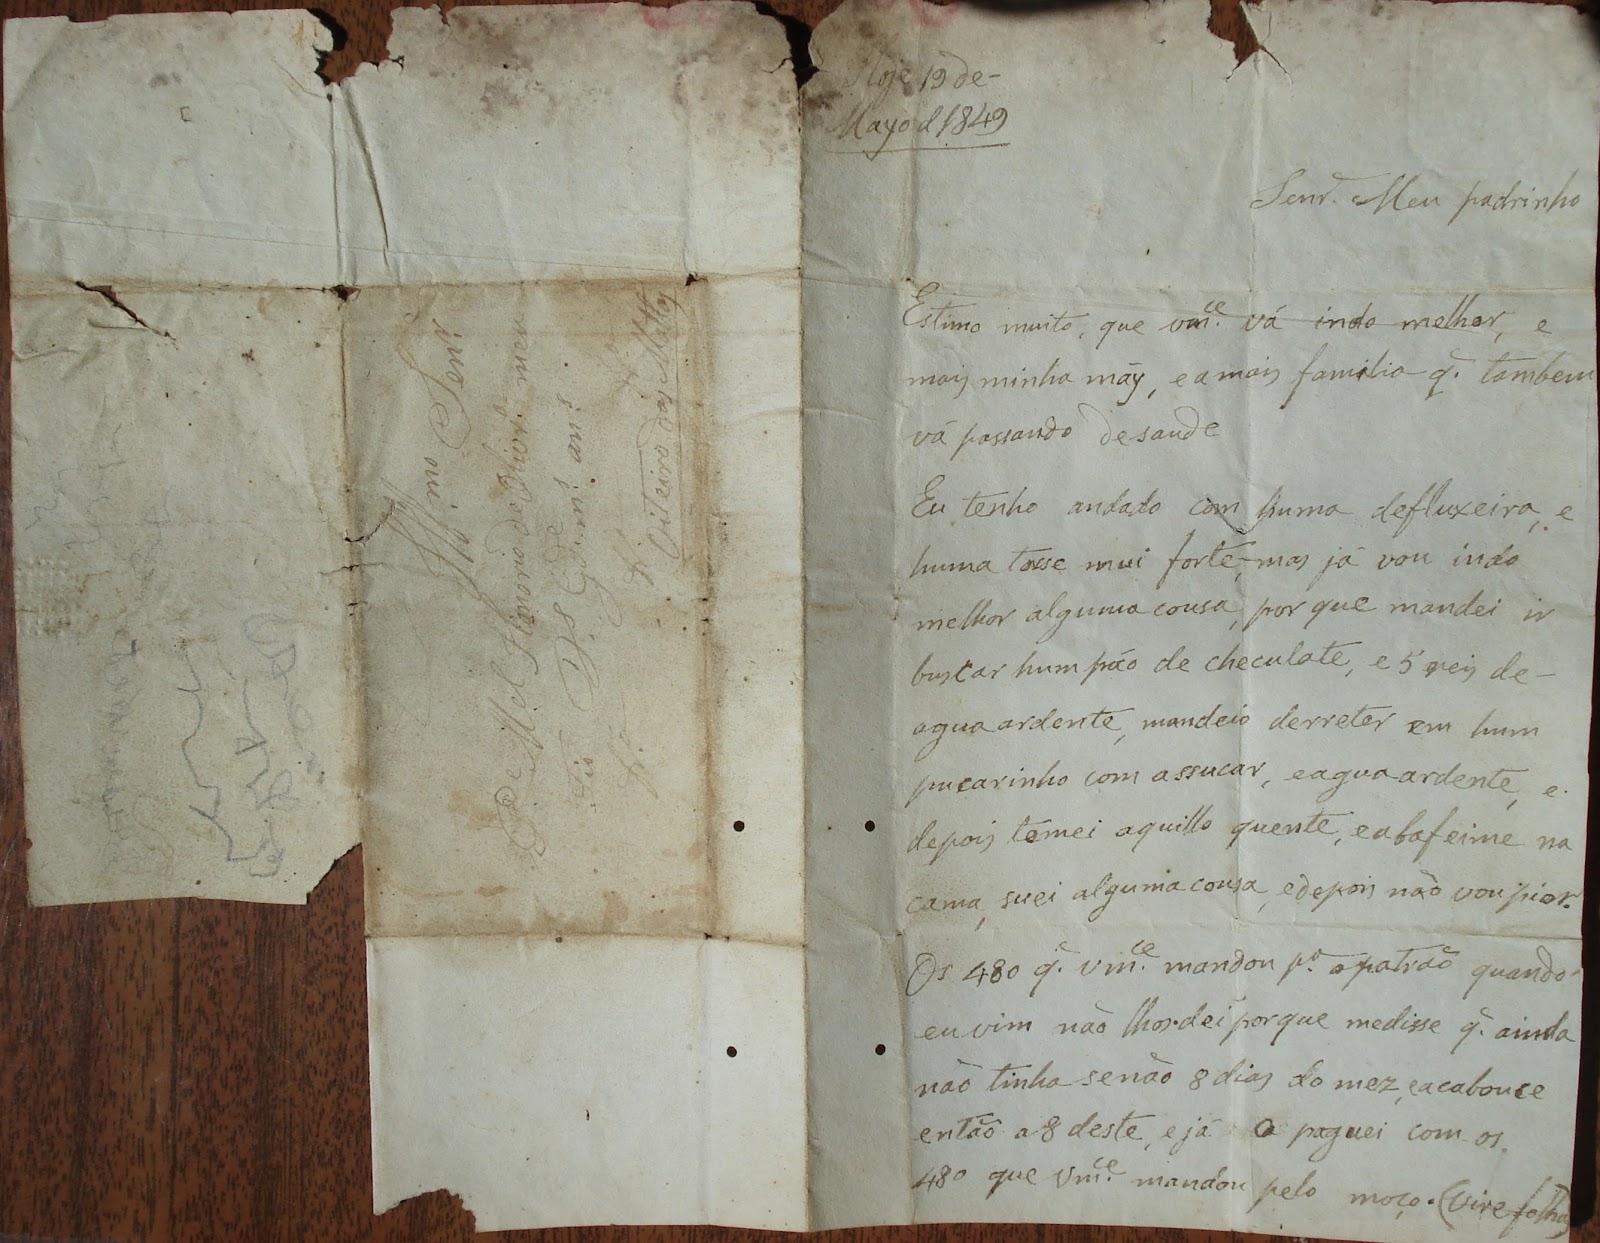 Hoje 19 de-
Mayo d 1849
Senr. Meu padrinho
Estimo muito, que vm.ce vá indo melhor, e
mais minha mãy, e a mais familia q. tambem
vá passando de saude
Eu tenho andado com huma defluxeira, e
huma tosse mui forte, mas já vou indo
melhor alguma cousa, por que mandei ir
buscar hum pão de checulate, e 5 reis de-
agua ardente, mandeio derreter em hum
pucarinho com assucar, e agua ardente, e
depois tomei aquillo quente, e abafeime na
cama, suei alguma cousa, e depois não vou pior.
Os 480 q. vm.ce mandou p.a o patrão quando
eu vim não lhos dei porque medisse q. ainda
não tinha senão 8 dias do mez, e acabouce
então a 8 deste, e já o paguei com os
480 que Vm.ce mandou pelo moço. (vire folha)
Illmo Senr
Mel Honorio de meu
D.s G.de m.s an.s
Oiteiro das Mattas